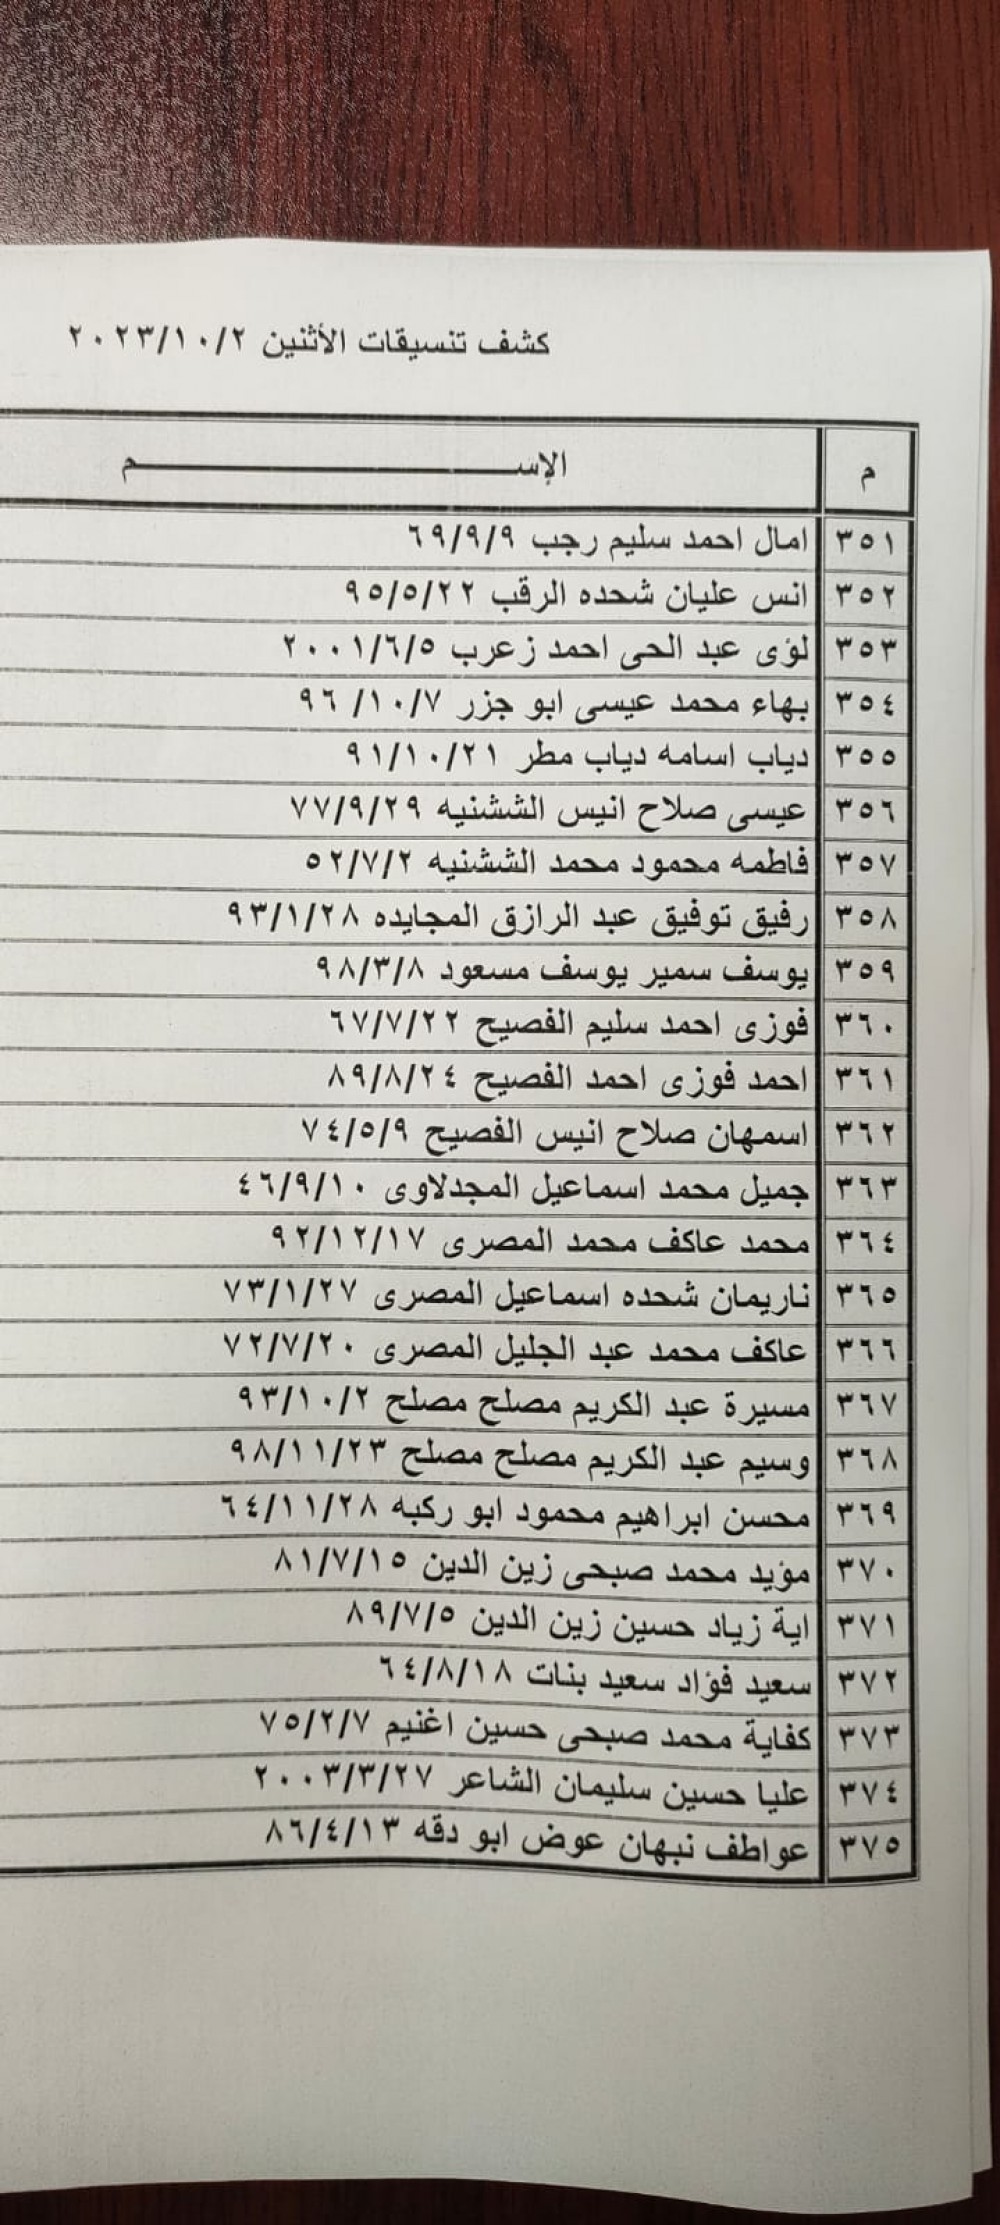 كشف تنسيقات الأثنين ٢٠٢٣/١٠/٢
م الإســـــــــــــــــــــــــم
٣٥١ امال احمد سليم رجب ٦٩/٩/٩
٣٥٢ انس عليان شحده الرقب ٩٥/٥/٢٢
٣٥٣ لؤى عبد الحى احمد زعرب ٢٠٠١/٦/٥
٣٥٤ بهاء محمد عيسى ابو جزر ٩٦ /١٠/٧
٣٥٥ دياب اسامه دياب مطر ٩١/١٠/٢١
٣٥٦ عيسى صلاح انيس الششنيه ٧٧/٩/٢٩
٣٥٧ فاطمه محمود محمد الششنيه ٥٢/٧/٢
٣٥٨ رفيق توفيق عبد الرازق المجايده ٩٣/١/٢٨
٣٥٩ يوسف سمير يوسف مسعود ٩٨/٣/٨
٣٦٠ فوزى احمد سليم الفصيح ٦٧/٧/٢٢
٣٦١ احمد فوزى احمد الفصيح ٨٩/٨/٢٤
٣٦٢ اسمهان صلاح انيس الفصيح ٧٤/٥/٩
٣٦٣ جميل محمد اسماعيل المجدلاوى ٤٦/٩/١٠
٣٦٤ محمد عاكف محمد المصرى ٩٢/١٢/١٧
٣٦٥ ناريمان شحده اسماعيل المصرى ٧٣/١/٢٧
٣٦٦ عاكف محمد عبد الجليل المصرى ٧٢/٧/٢٠
٣٦٧ مسيرة عبد الكريم مصلح مصلح ٩٣/١٠/٢
٣٦٨ وسيم عبد الكريم مصلح مصلح ٩٨/١١/٢٣
٣٦٩ محسن ابراهيم محمود ابو ركبه ٦٤/١١/٢٨
٣٧٠ مؤيد محمد صبحى زين الدين ٨١/٧/١٥
٣٧١ اية زياد حسين زين الدين ٨٩/٧/٥
٣٧٢ سعيد فؤاد سعيد بنات ٦٤/٨/١٨
٣٧٣ كفاية محمد صبحى حسين اغنيم ٧٥/٢/٧
٣٧٤ عليا حسين سليمان الشاعر ٢٠٠٣/٣/٢٧
٣٧٥ عواطف نبهان عوض ابو دقه ٨٦/٤/١٣